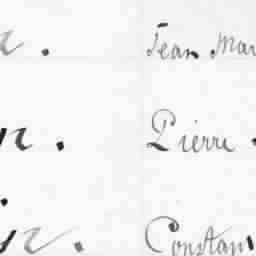 r. Jean Mar
n. Pierre
in. Constan